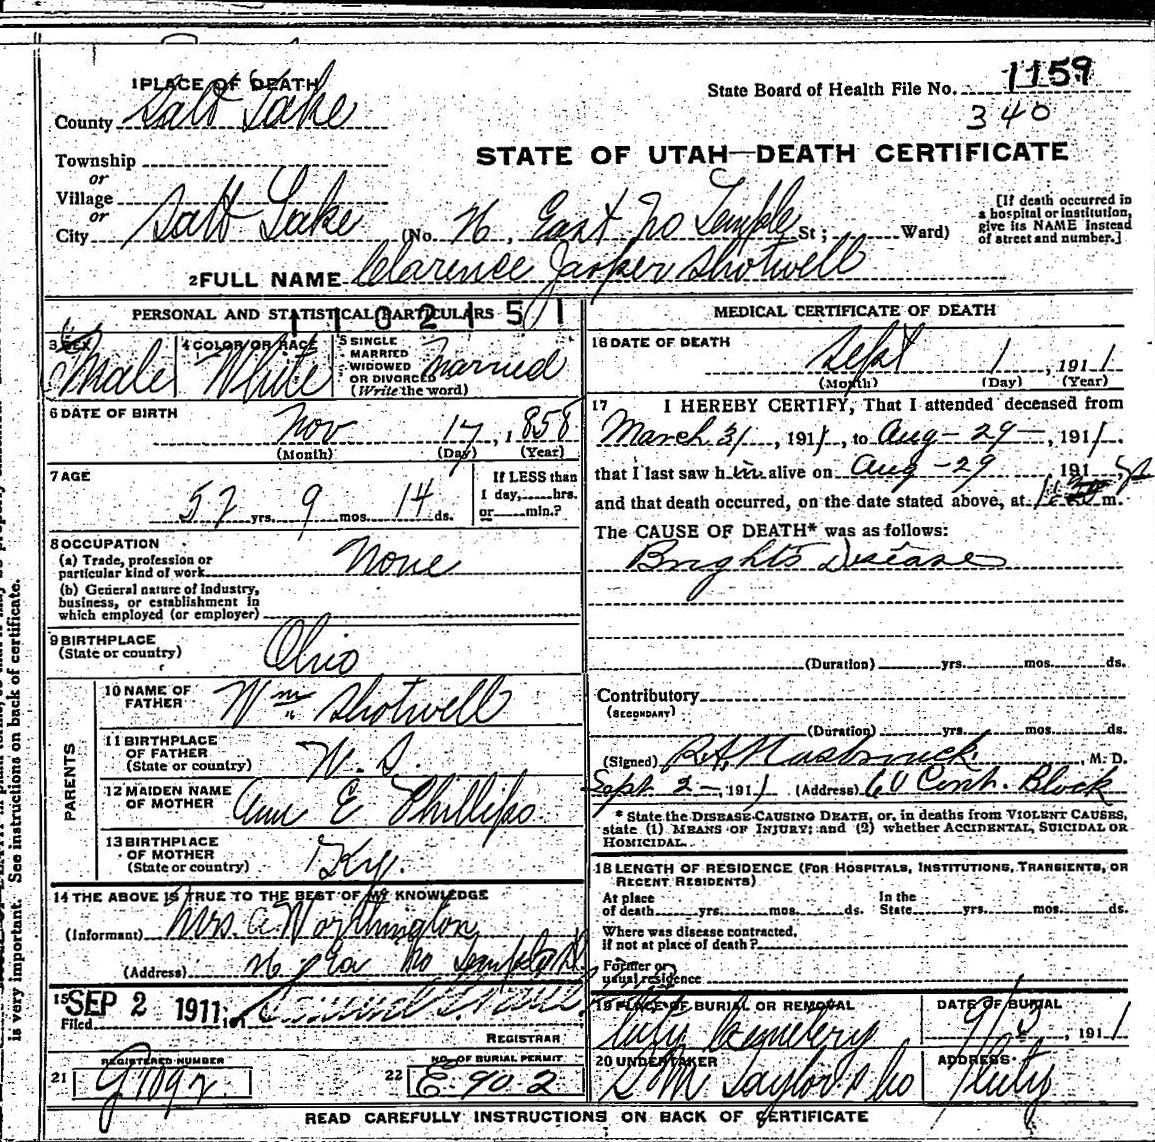 1 PLACE OF DEATH
State Board of Health File No. 1159
340
County Salt Lake
STATE OF UTAH—DEATH CERTIFICATE
Township
or
Village
or
City Salt Lake (No. 76, East No Temple St; Ward)
[If death occurred in
a hospital or institution,
give its NAME instead
of street and number.]
2 FULL NAME Clarence Jasper Shotwell
PERSONAL AND STATISTICAL PARTICULARS
1102151
3 SEX Male
4 COLOR OR RACE White
5 SINGLE
MARRIED
WIDOWED
OR DIVORCED
(Write the word) Married
6 DATE OF BIRTH
Nov 17, 1858
(Month) (Day) (Year)
7 AGE
52 yrs. 9 mos. 14 ds.
If LESS than
1 day, hrs.
or min.?
8 OCCUPATION
(a) Trade, profession or
particular kind of work None
(b) General nature of Industry,
business, or establishment in
which employed (or employer)
9 BIRTHPLACE
(State or country) Ohio
PARENTS
10 NAME OF
FATHER Wm Shotwell
11 BIRTHPLACE
OF FATHER
(State or country)
12 MAIDEN NAME
OF MOTHER Ann E Phillips
13 BIRTHPLACE
OF MOTHER
(State or country) Ky.
14 THE ABOVE IS TRUE TO THE BEST OF MY KNOWLEDGE
(Informant) Mrs. C. Worthington
(Address) No Temple St
15 SEP 2 1911
Filed
REGISTRAR
REGISTERED NUMBER
21
NO. OF BURIAL PERMIT
22 E-902
MEDICAL CERTIFICATE OF DEATH
16 DATE OF DEATH
Sept 1, 1911
(Month) (Day) (Year)
17 I HEREBY CERTIFY, That I attended deceased from
March 31, 1911, to Aug-29-, 1911.
that I last saw him alive on Aug-29 191
and that death occurred, on the date stated above, at m.
The CAUSE OF DEATH* was as follows:
Brights Disease
(Duration) yrs. mos. ds.
Contributory
(SECONDARY)
(Duration) yrs. mos. ds.
(Signed) R.A. Hasbrouck, M. D.
Sept 2-, 1911 (Address) 60 Cont. Block
* State the DISEASE CAUSING DEATH, or, in deaths from VIOLENT CAUSES,
state (1) MEANS OF INJURY; and (2) whether ACCIDENTAL, SUICIDAL OR
HOMICIDAL.
18 LENGTH OF RESIDENCE (FOR HOSPITALS, INSTITUTIONS, TRANSIENTS, OR
RECENT RESIDENTS)
At place
of death yrs. mos. ds.
In the
State yrs. mos. ds.
Where was disease contracted,
if not at place of death?
Former or
usual residence
19 PLACE OF BURIAL OR REMOVAL
City Cemetery
DATE OF BURIAL
9/3, 1911
20 UNDERTAKER
S M Taylor & Co
ADDRESS
City
READ CAREFULLY INSTRUCTIONS ON BACK OF CERTIFICATE
is very important. See instructions on back of certificate.